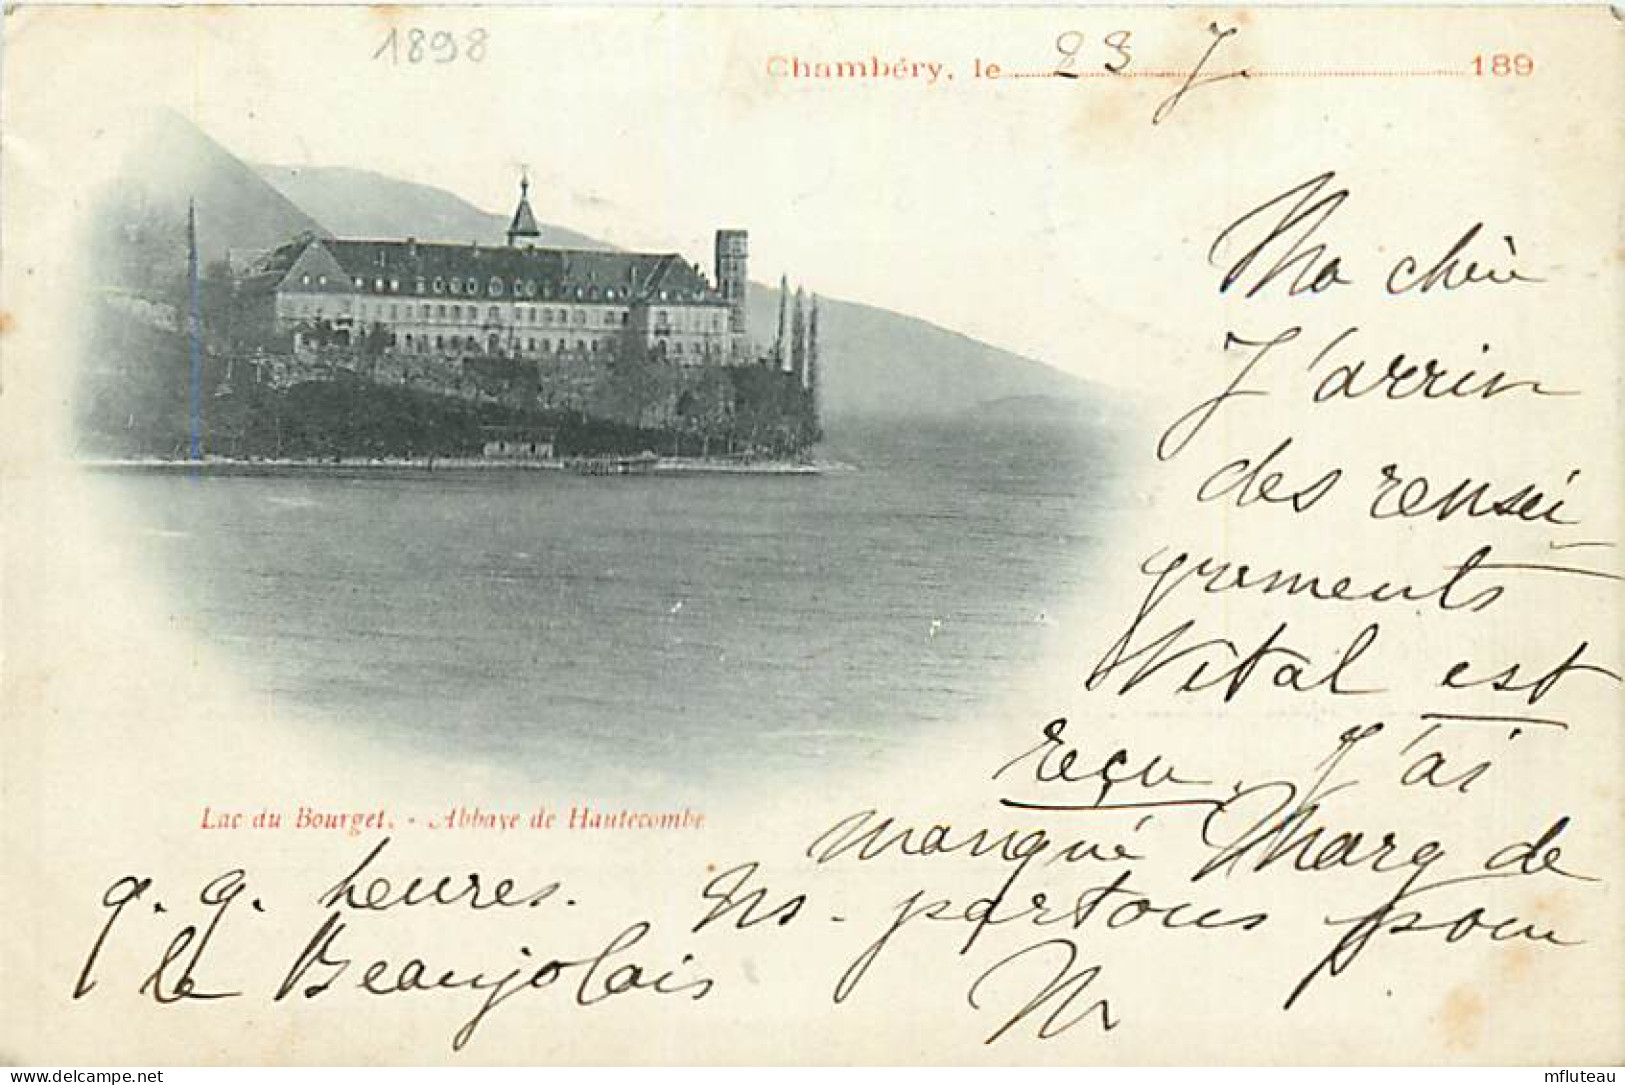 1898
Chambéry, le 23 7. 189
Ma chère
J'arrive
des rensei
gnements
Vital est
reçu. J'ai
Lac du Bourget. - Abbaye de Hautecombe
manqué Marg de
q. q. heures. Ns. partons pour
le Beaujolais
www.delcampe.net
mfluteau